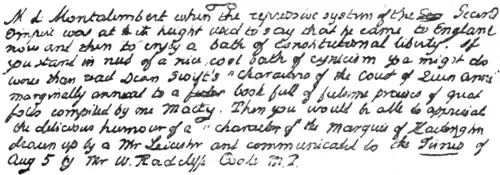 M de Montalembert when the repressive system of the Second
Empire was at its height used to say that he came to England
now and then to enjoy a bath of Constitutional liberty. If
you stand in need of a nice cool bath of cynicism you might do
worse than read Dean Swift's "characters of the Court of Queen Anne"
marginally annexed to a book full of fulsome praises of great
folks compiled by one Macky. Then you would be able to appreciate
the delicious humour of a "character of the Marquis of
drawn up by a Mr Leicester and communicated to the Times of
Aug 5 by Mr W. Radcliffe Cooke M.P.